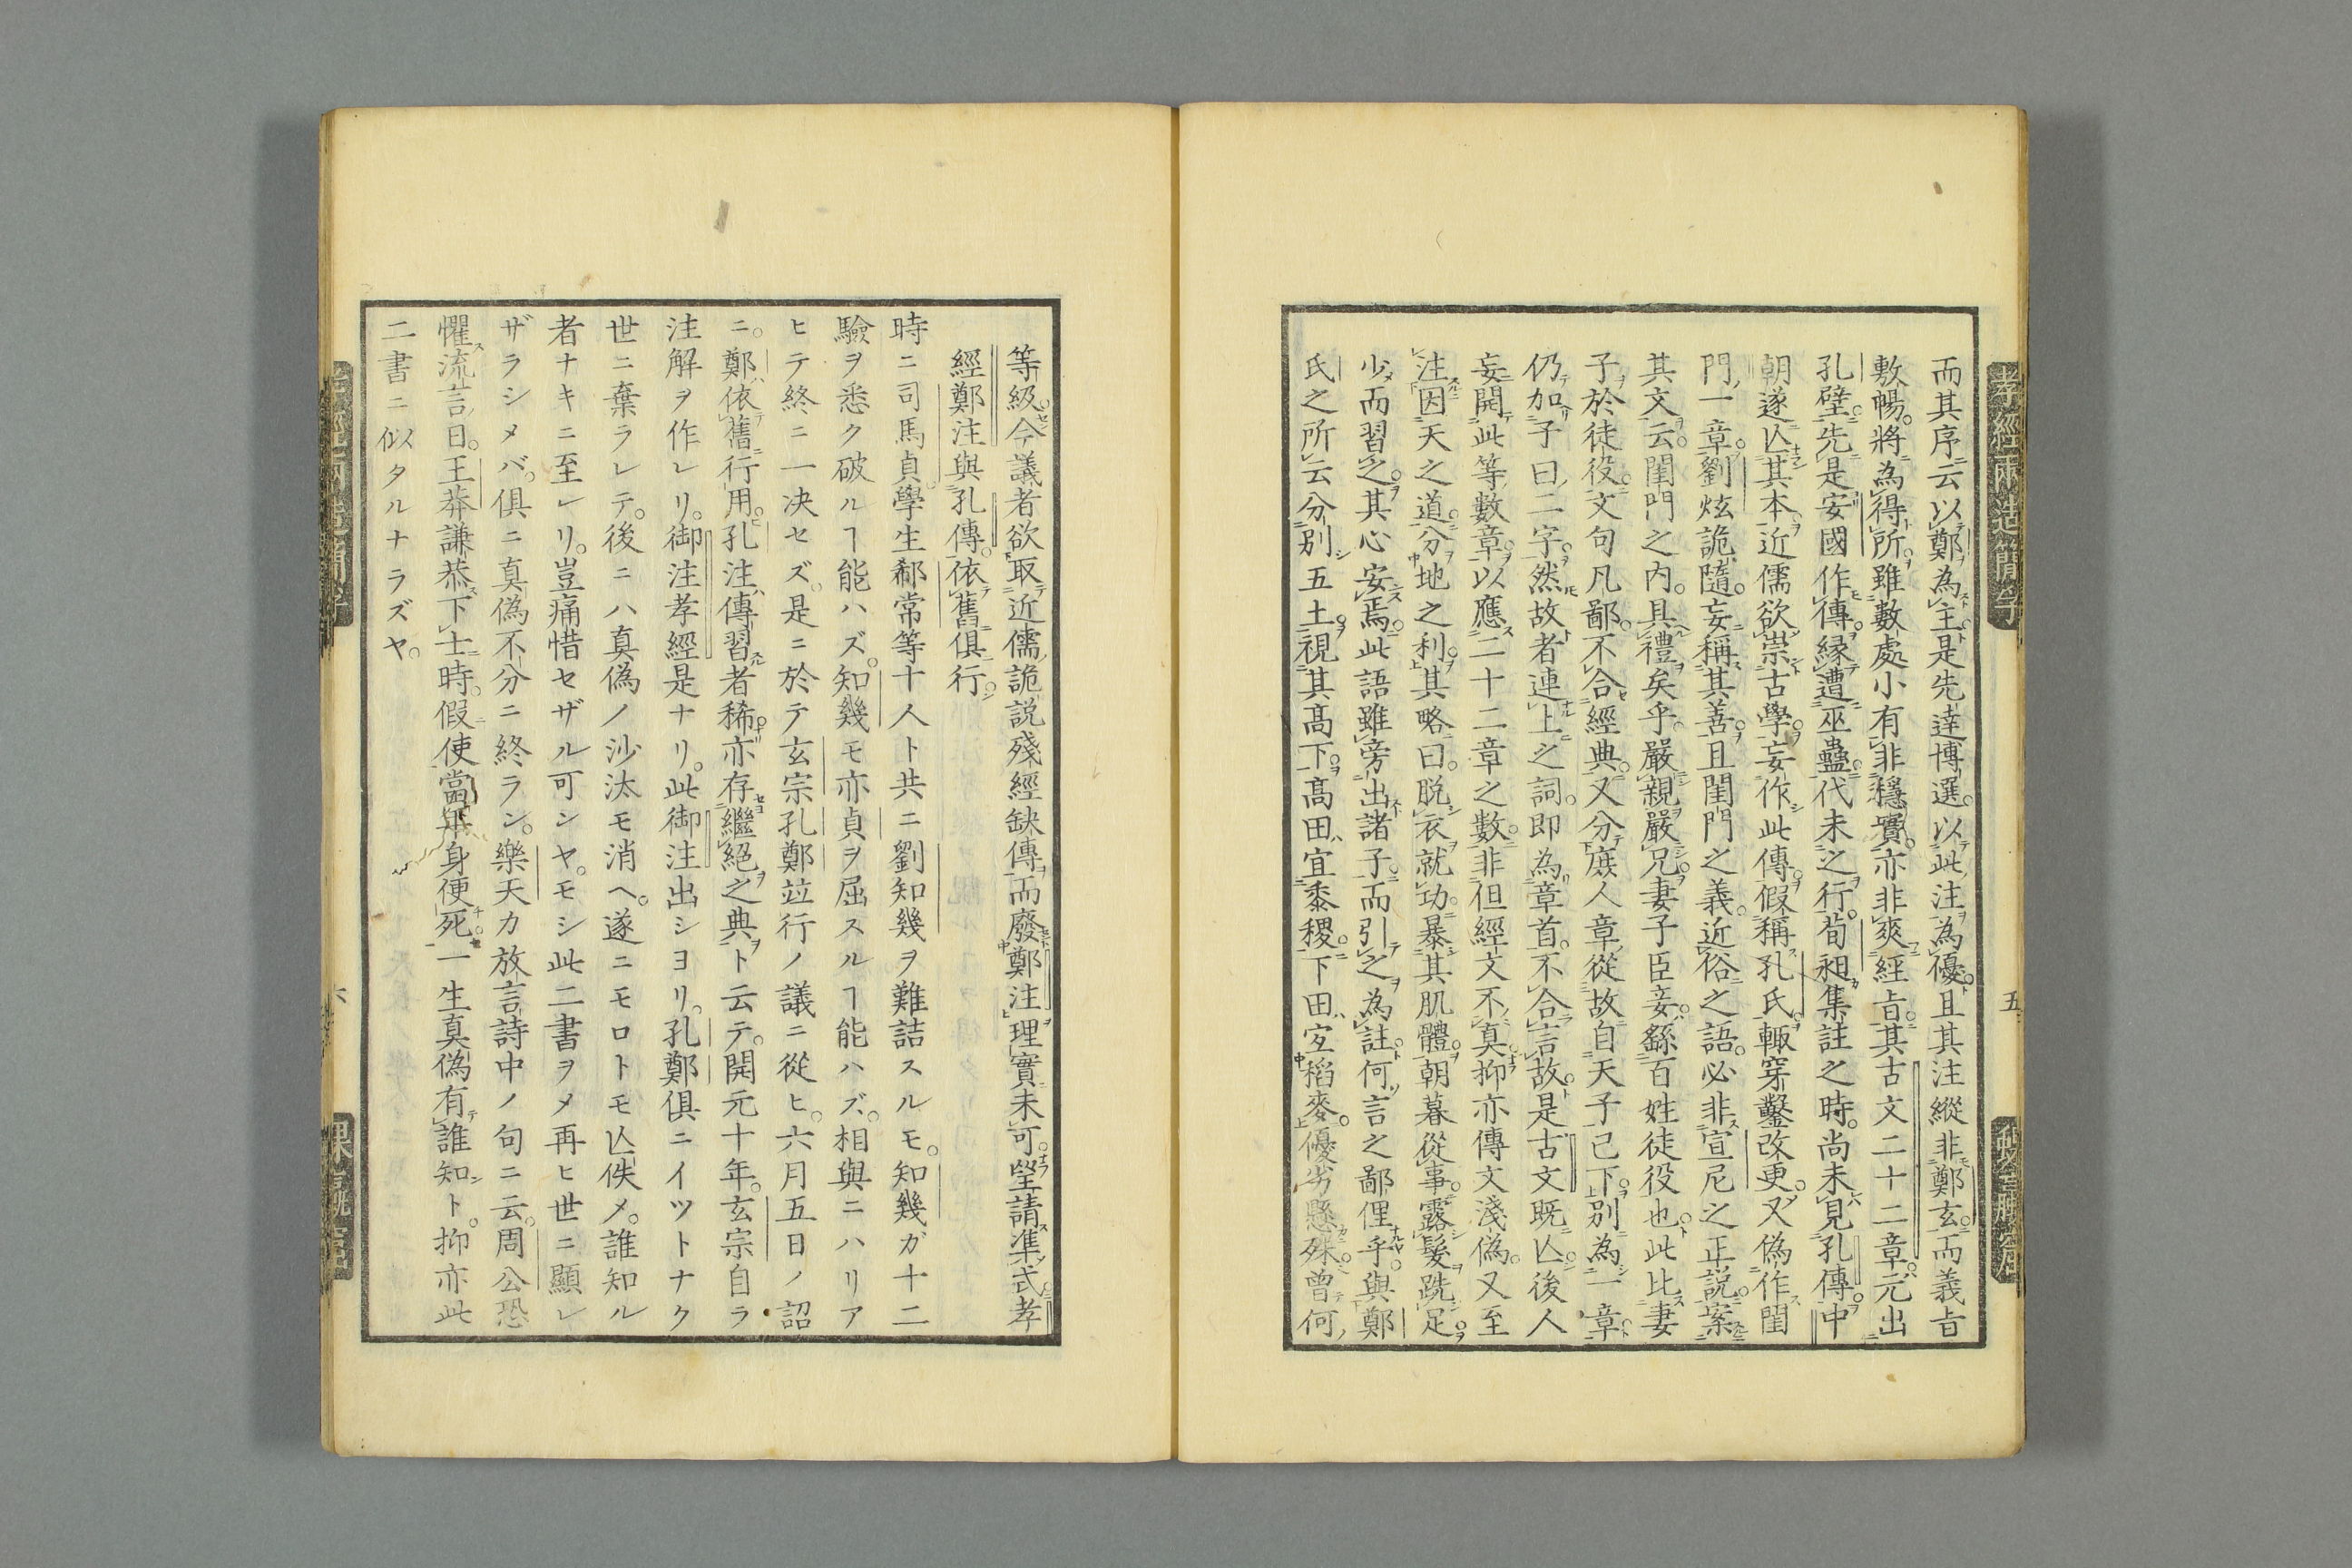 而其序云以鄭為主是先達博選以此注為優且其注縱非鄭玄而義㫖
敷暢將為得所雖數處小有非穩實亦非爽經㫖其古文二十二章元出
孔壁先是安國作傳緣遭巫蠱代未之行荀昶集註之時尚未見孔傳中
朝遂亾其本近儒欲崇古學妄作此傳假稱孔氏輙穿鑿改更又偽作閨
門一章劉炫詭隨妄稱其善且閨門之義近俗之語必非宣尼之正說案
其文云閨門之內具禮矣乎嚴親嚴兄妻子臣妾繇百姓徒役也此比妻
子於徒役文句凡鄙不合經典又分庶人章從故自天子已下別為一章
仍加子曰二字然故者連上之詞即為章首不合言故是古文既亾後人
妄開此等數章以應二十二章之數非但經文不真抑亦傳文淺偽又至
注因天之道分地之利其略曰脫衣就功暴其肌體朝暮從事露髮跣足
少而習之其心安焉此語雖旁出諸子而引之為註何言之鄙俚乎與鄭
氏之所云分別五土視其高下高田宜黍稷下田宜稻麥優劣懸殊曽何
等級今議者欲取近儒詭說殘經缺傳而廢鄭注理實未可望請準式孝
經鄭注與孔傳依舊俱行
時ニ司馬貞學生郗常等十人ト共ニ劉知幾ヲ難詰スルモ知幾ガ十二
驗ヲ悉ク破ルヿ能ハズ知幾モ亦貞ヲ屈スルヿ能ハズ相與ニハリア
ヒテ終ニ一決セズ是ニ於テ玄宗孔鄭竝行ノ議ニ從ヒ六月五日ノ詔
ニ鄭依舊行用孔注傳習者稀亦存繼絕之典ト云テ開元十年玄宗自ラ
注解ヲ作レリ御注孝經是ナリ此御注出シヨリ孔鄭俱ニイツトナク
世ニ棄ラレテ後ニハ真偽ノ沙汰モ消ヘ遂ニモロトモ亾佚メ誰知ル
者ナキニ至レリ豈痛惜セザル可シヤモシ此二書ヲメ再ヒ世ニ顯レ
ザラシメバ俱ニ真偽不分ニ終ラン樂天カ放言詩中ノ句ニ云周公恐
懼流言日王莽謙恭下士時假使當年身便死一生真偽有誰知ト抑亦此
二書ニ似タルナラズヤ
五
六